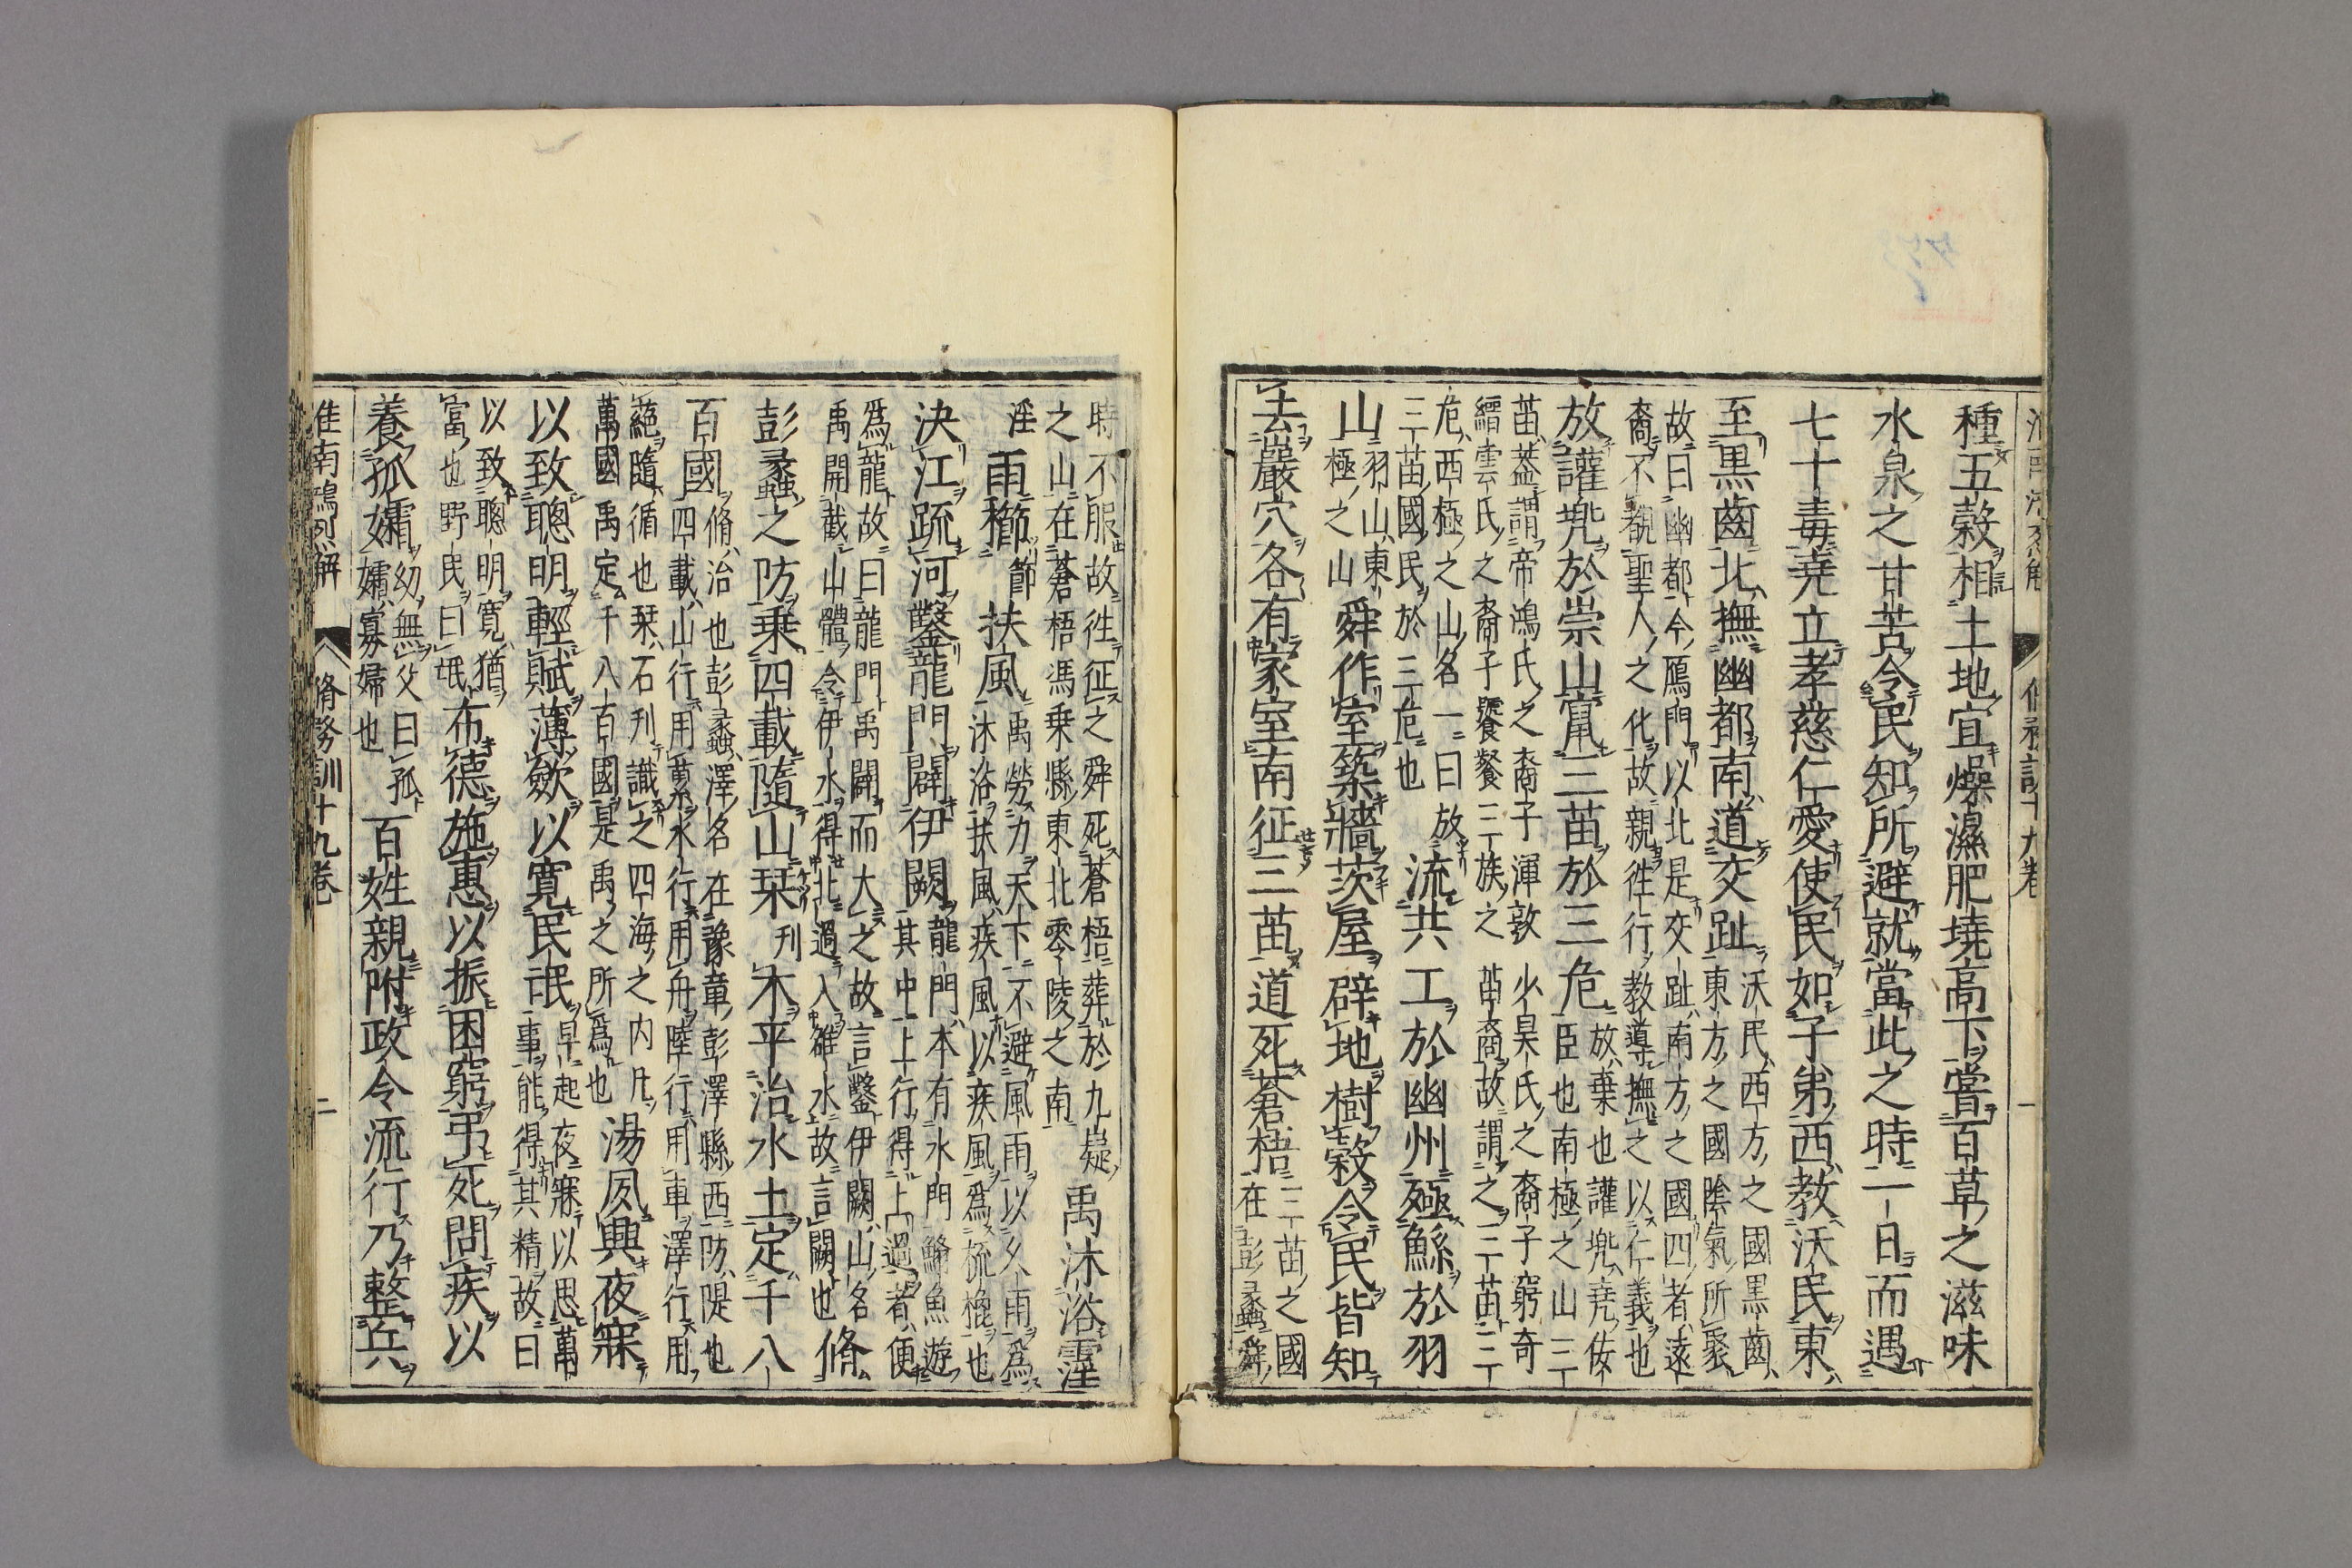 種五穀相土地宜燥濕肥墝高下嘗百草之滋味
水泉之甘苦令民知所避就當此之時一日而遇
七十毒堯立孝慈仁愛使民如子弟西教沃民東
至黒齒北撫幽都南道交趾沃民西方之國黒齒
東方之國陰氣所聚
故曰幽都今鴈門以北是交趾南方之國四者遠
裔不覩聖人之化故親徃行教導撫之以仁義也
放讙兠於崇山竄三苗於三危放棄也讙兠堯佞
臣也南極之山三
苗蓋謂帝鴻氏之裔子渾敦少昊氏之裔子窮奇
縉雲氏之裔子饕餮三族之苗裔故謂之三苗三
危西極之山名一曰放
三苗國民於三危也流共工於幽州殛鯀於羽
山羽山東
極之山舜作室築牆茨屋辟地樹穀令民皆知
去巖穴各有家室南征三苗道死蒼梧三苗之國
在彭蠡舜
時不服故徃征之舜死蒼梧葬於九嶷
之山在蒼梧馮乗縣東北零陵之南禹沐浴霪
淫雨櫛節扶風禹勞力天下不避風雨以久雨爲
沐浴扶風疾風以疾風爲梳櫛也
決江疏河鑿龍門闢伊闕龍門本有水門鮪魚遊
其中上行得上過者便
爲龍故曰龍門禹闢而大之故言鑿伊闕山名
禹開截山體令伊水得北過入雒水故言闕也脩
彭蠡之防乗四載隨山栞刊木平治水土定千八
百國脩治也彭蠡澤名在豫章彭澤縣西防隄也
四載山行用蔂水行用舟陸行用車澤行用
蕝隨循也栞石刊識之四海之内凡
萬國禹定千八百國是禹之所爲也湯夙興夜寐
以致聰明輕賦薄歛以寛民氓早起夜寐以思萬
事能得其精故曰
以致聰明寛猶
富也野民曰氓布德施惠以振困窮弔死問疾以
養孤孀幼無父曰孤
孀寡婦也百姓親附政令流行乃整兵
淮南鴻烈解 脩務訓十九卷 二